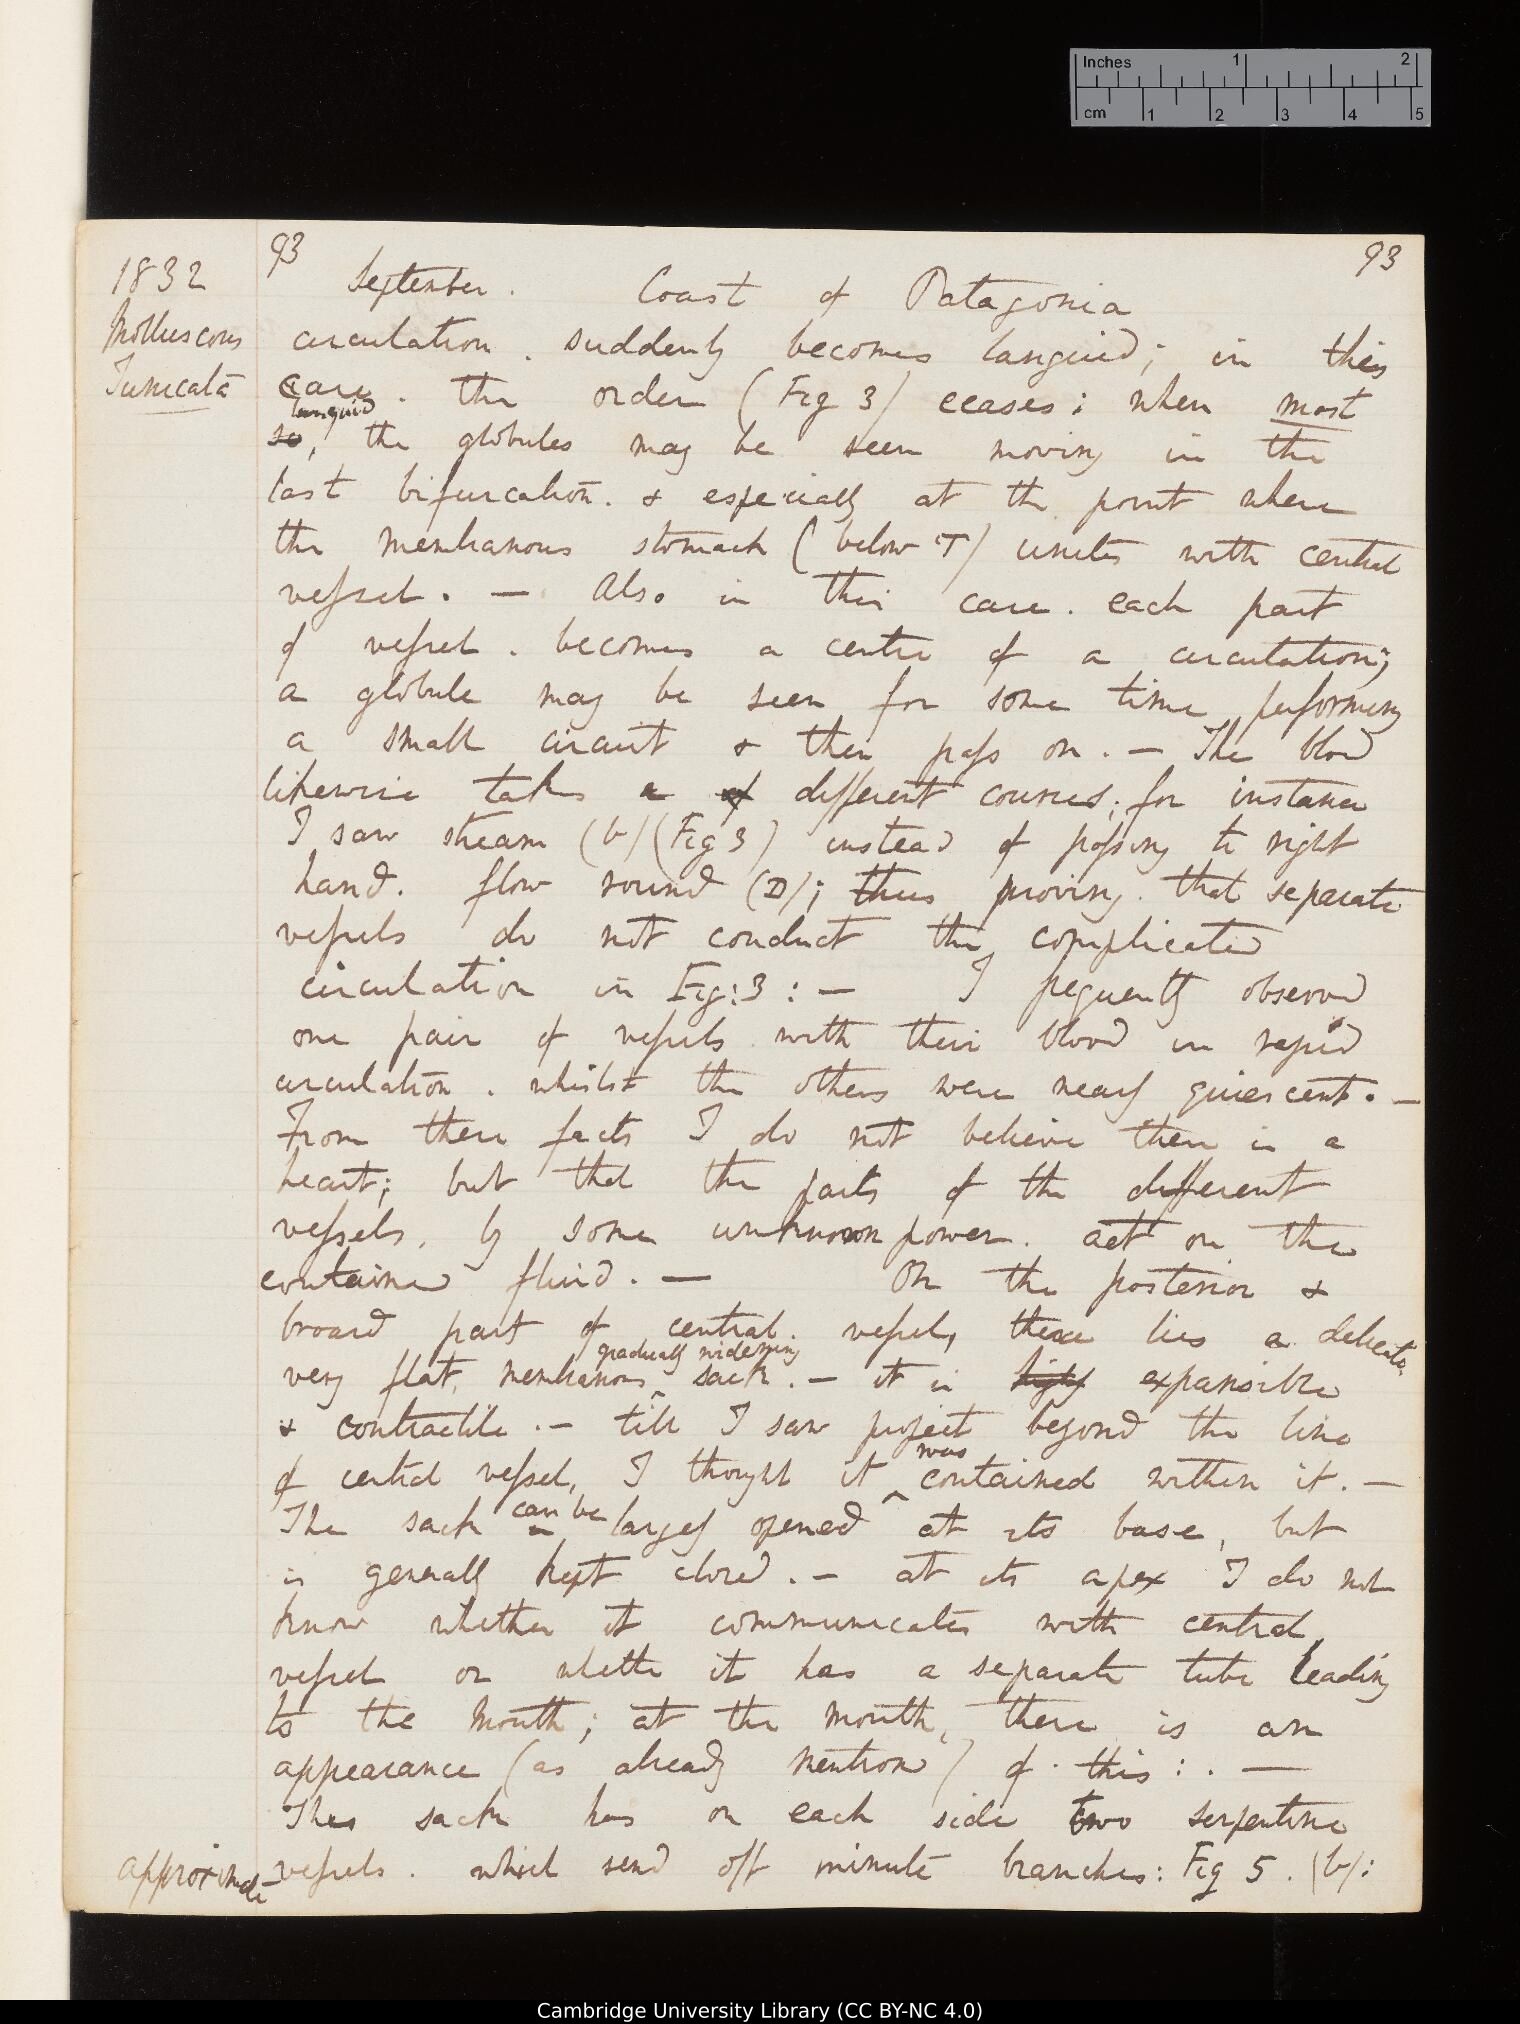 Inches 1 2
cm 1 2 3 4 5
93 93
1832
Molluscous
Tunicata
September. Coast of Patagonia
circulation. suddenly becomes languid; in this
case. the order (Fig 3) ceases; when most
languid
so, the globules may be seen moving in the
last bifurcation. & especially at the point where
the membranous stomach (below T) unites with central
vessel. — Also in this case. each part
of vessel. becomes a centre of a circulation;
a globule may be seen for some time performing
a small circuit & then pass on. — The blood
likewise takes a of different courses; for instance
I saw stream (b) (Fig 3) instead of passing to right
hand. flow round (D); thus proving. that separate
vessels do not conduct the complicated
circulation in Fig: 3: — I frequently observed
one pair of vessels with their blood in rapid
circulation. whilst the others were nearly quiescent. —
From these facts I do not believe there is a
heart; but that the parts of the different
vessels, by some unknown power. act on the
contained fluid. — On the posterior &
broard part of central. vessel, there lies a delicate
gradually widening
very flat, membranous ^ sack. — it is highly expansible
& contractile. — till I saw project beyond the line
was
of central vessel, I thought it ^ contained within it. —
can be
The sack is largely opened at its base, but
is generally kept closed. — at its apex I do not
know whether it communicates with central
vessel or whether it has a separate tube leading
to the mouth; at the mouth, there is an
appearance (as already mention) of this: . —
This sack has on each side two serpentine
vessels. which send off minute branches: Fig 5. (b):
approximate
Cambridge University Library (CC BY-NC 4.0)